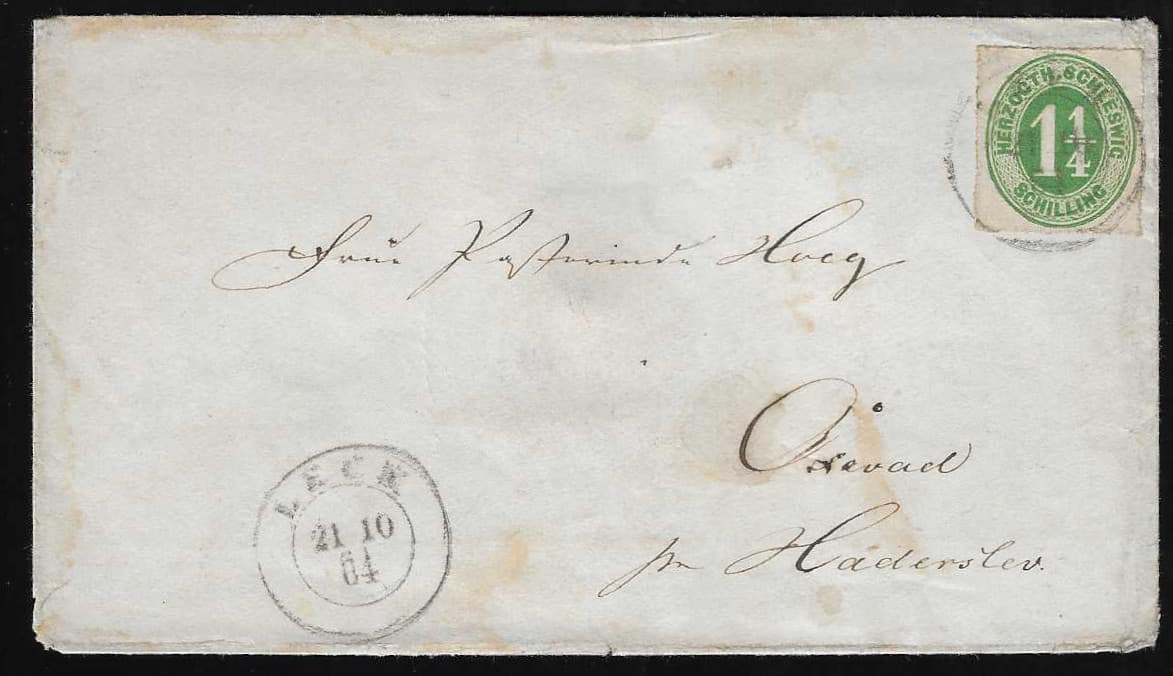 HERZOGTH. SCHLESWIG
1 1/4
SCHILLING
Frue Pastorinde Hoeg
Oxevad
pr Haderslev.
LECK
21 10
64